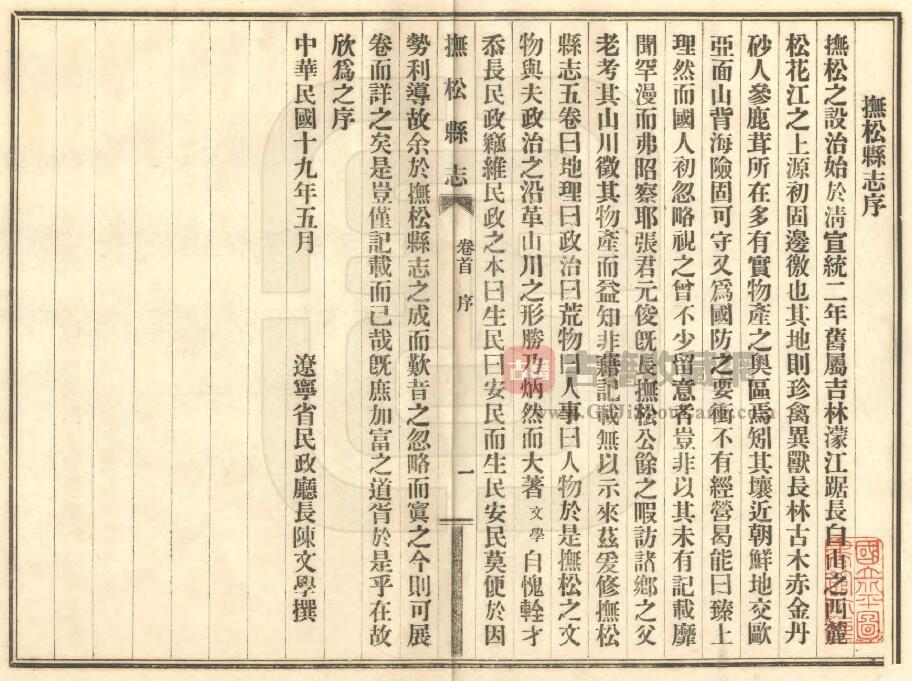 撫松縣志序
撫松之設治始於清宣統二年舊屬吉林濛江踞長白山之西麓
松花江之上源初固邊徼也其地則珍禽異獸長林古木赤金丹
砂人參鹿茸所在多有實物產之奧區焉矧其壤近朝鮮地交歐
亞面山背海險固可守又爲國防之要衝不有經營曷能曰臻上
理然而國人初忽略視之曾不少留意者豈非以其未有記載靡
聞罕漫而弗昭察耶張君元俊既長撫松公餘之暇訪諸鄉之父
老考其山川徵其物產而益知非藉記載無以示來茲爰修撫松
縣志五卷曰地理曰政治曰荒物曰人事曰人物於是撫松之文
物與夫政治之沿革山川之形勝乃炳然而大著文學自愧輇才
忝長民政竊維民政之本曰生民曰安民而生民安民莫便於因
撫松縣志 卷首 序 一
勢利導故余於撫松縣志之成而歎昔之忽略而寘之今則可展
卷而詳之矣是豈僅記載而已哉既庶加富之道胥於是乎在故
欣爲之序
中華民國十九年五月 遼寧省民政廳長陳文學撰
古籍收藏网